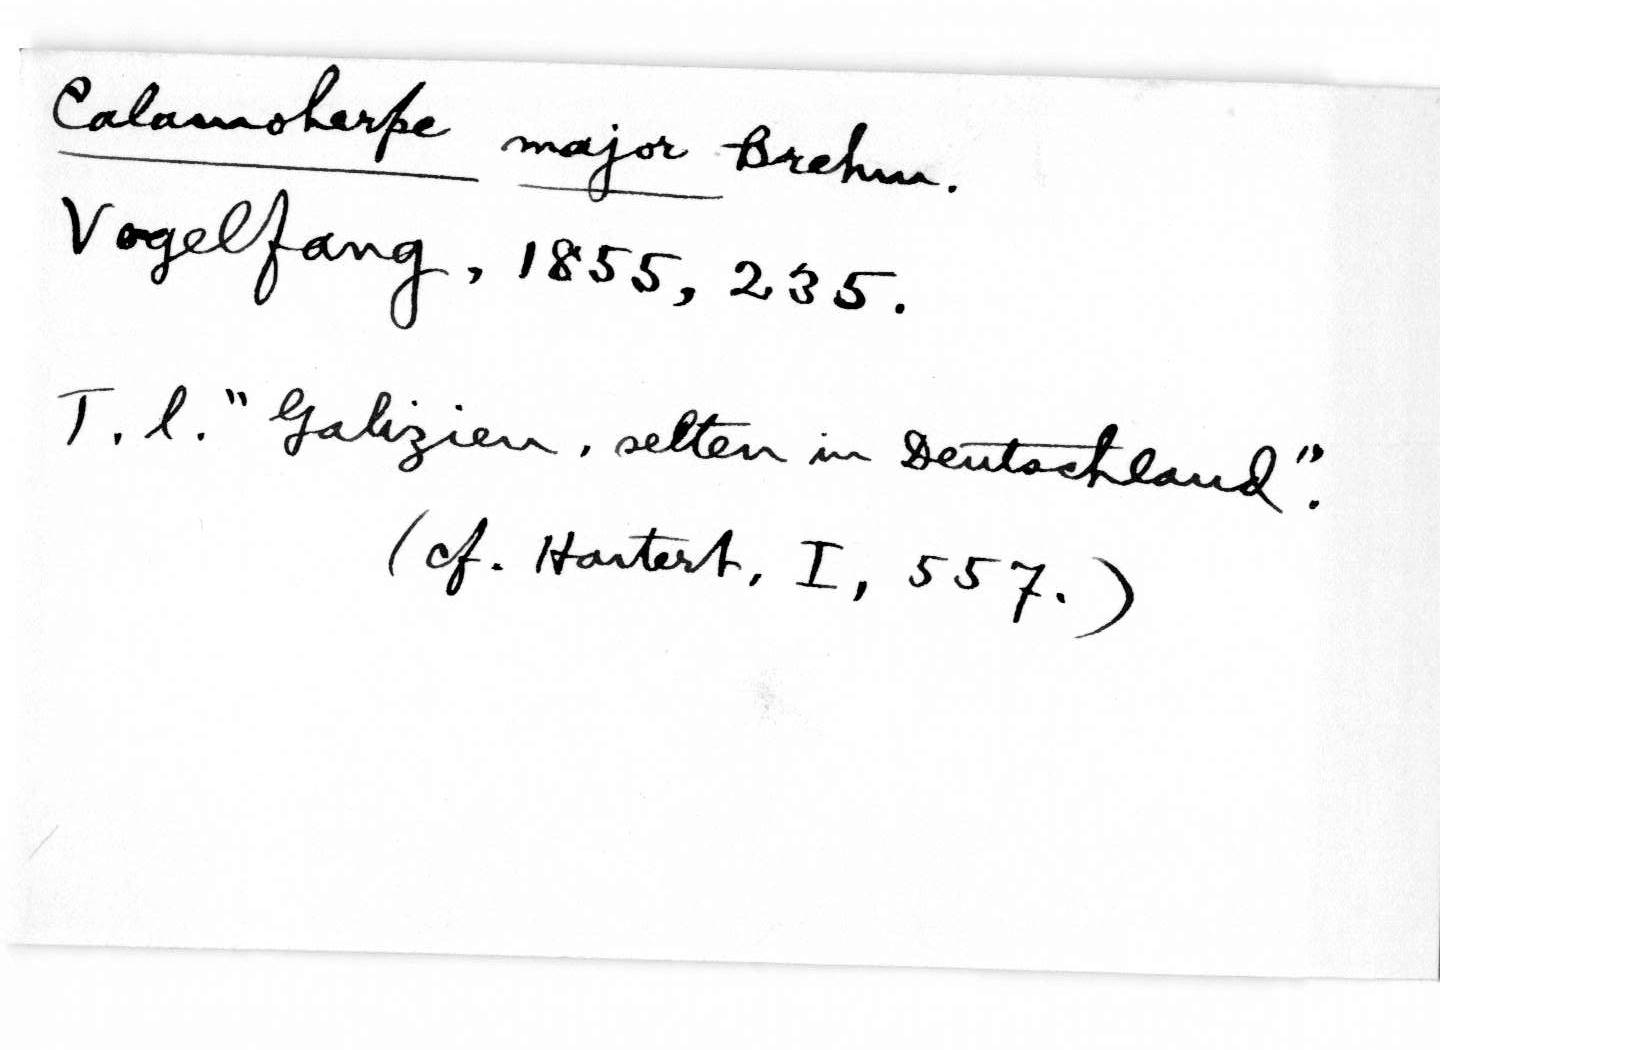 Calamoherpe major Brehm.
Vogelfang, 1855, 235.
T. l. "Galizien, selten in Deutschland".
(cf. Hartert, I, 557.)